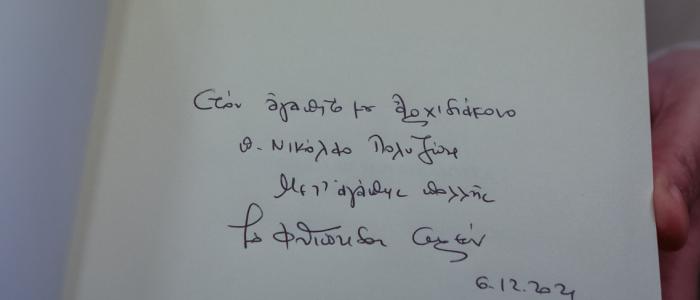 Στόν ἀγαπητό μου Ἀρχιδιάκονο
π. Νικόλαο Πολυζώη
Μετ' ἀγάπης πολλῆς
6.12.2021